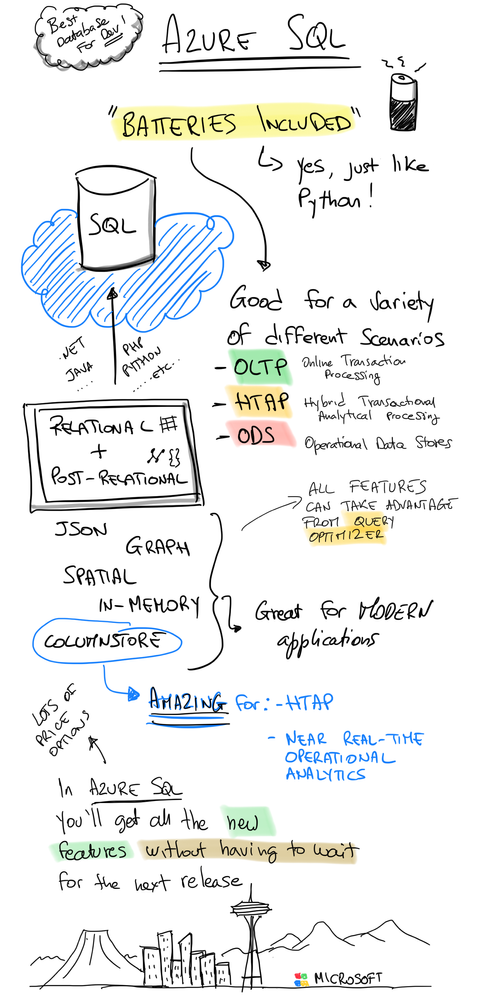 Best
Database
For Dev!
AZURE SQL
"BATTERIES INCLUDED"
yes, just like
Python!
SQL
Good for a variety
of different scenarios
- OLTP Online Transaction
Processing
- HTAP Hybrid Transactional
Analytical Processing
- ODS Operational Data Stores
.NET
JAVA
.....
PHP
PYTHON
.....etc...
RELATIONAL
+
POST-RELATIONAL
{}
ALL FEATURES
CAN TAKE ADVANTAGE
FROM QUERY
OPTIMIZER
JSON
GRAPH
SPATIAL
IN-MEMORY
COLUMNSTORE
Great for MODERN
applications
AMAZING FOR: - HTAP
- NEAR REAL-TIME
OPERATIONAL
ANALYTICS
LOTS OF
PRICE
OPTIONS
In AZURE SQL
you'll get all the new
features without having to wait
for the next release
MICROSOFT